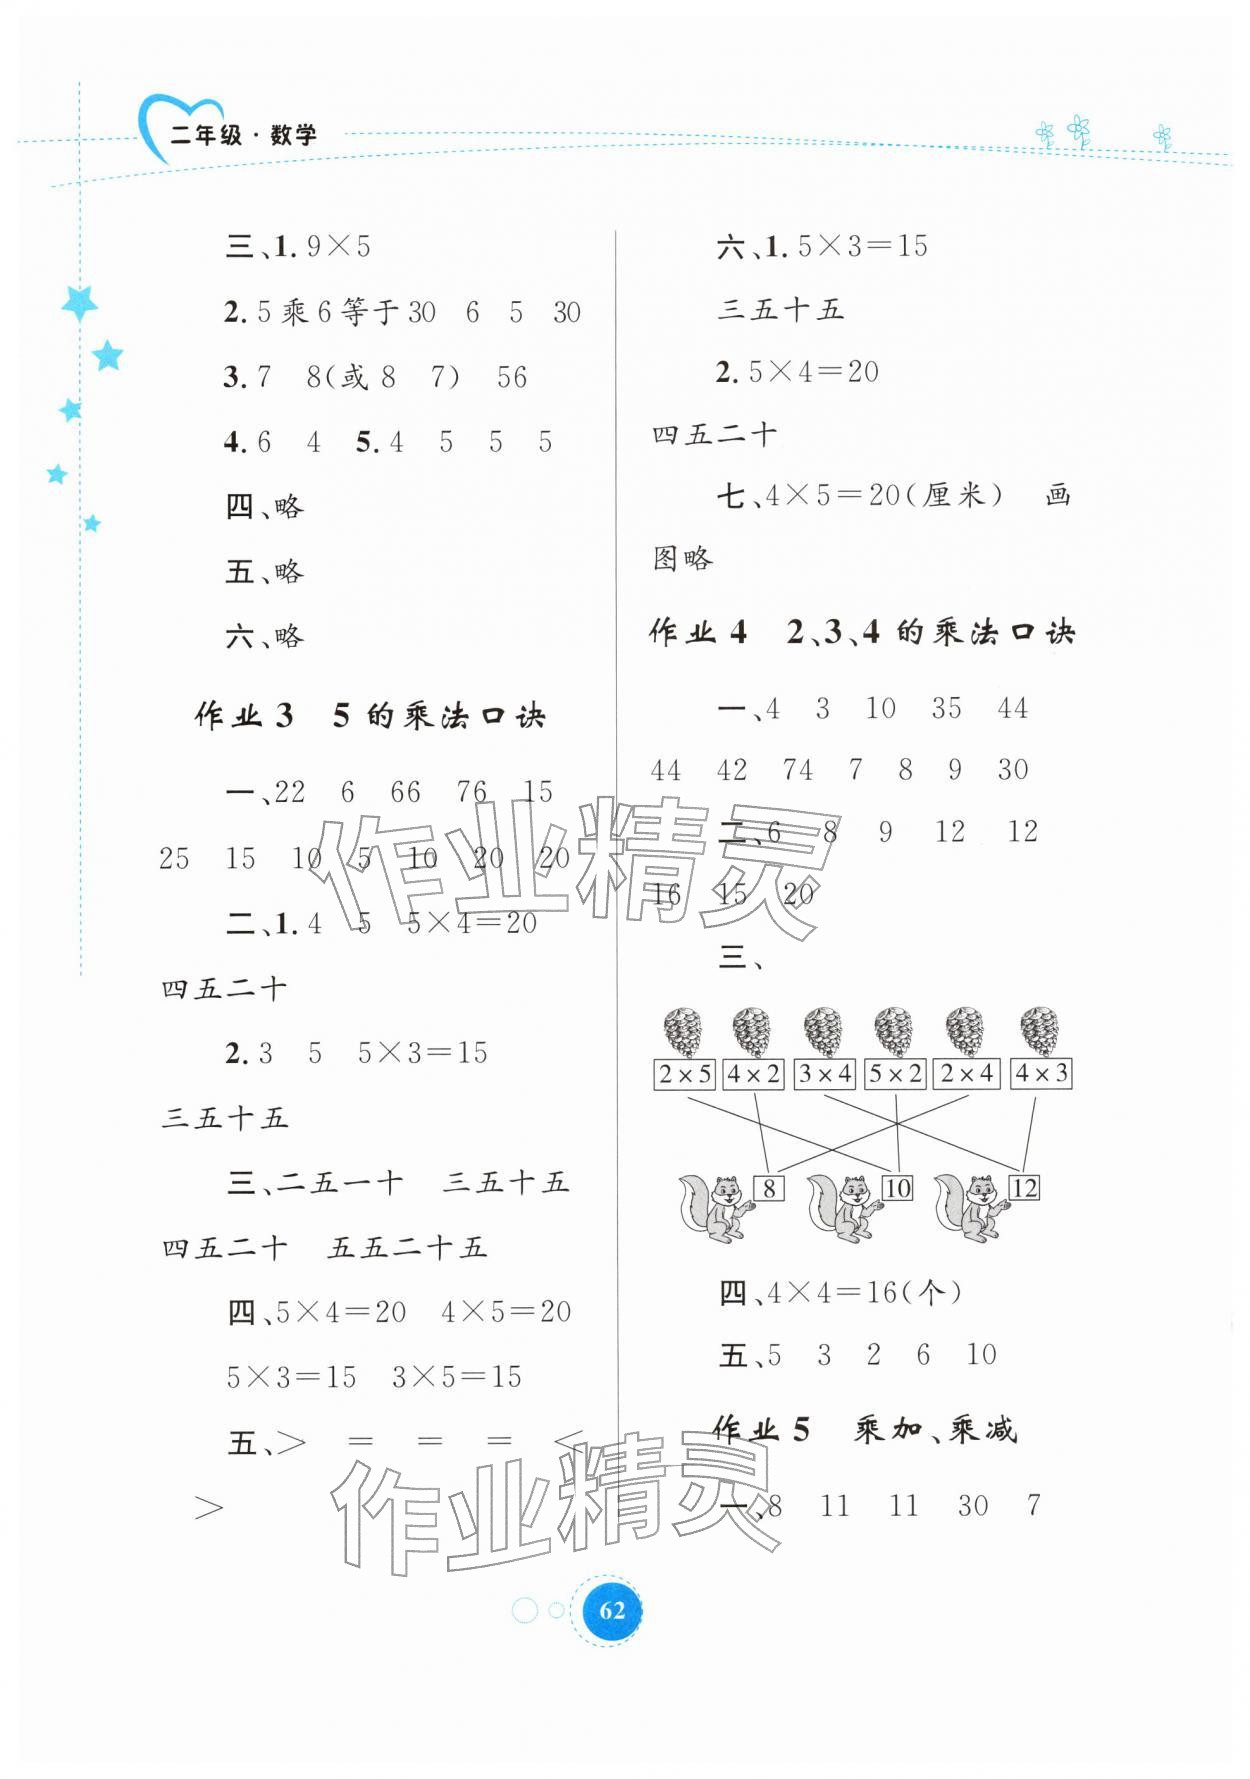 二年级·数学
三、1. 9×5
2. 5乘6等于30 6 5 30
3. 7 8(或8 7) 56
4. 6 4 5. 4 5 5 5
四、略
五、略
六、略
作业3 5的乘法口诀
一、22 6 66 76 15
25 15 10 5 10 20 20
二、1. 4 5 5×4=20
四五二十
2. 3 5 5×3=15
三五十五
三、二五一十 三五十五
四五二十 五五二十五
四、5×4=20 4×5=20
5×3=15 3×5=15
五、> = = = <
>
六、1. 5×3=15
三五十五
2. 5×4=20
四五二十
七、4×5=20(厘米) 画
图略
作业4 2、3、4的乘法口诀
一、4 3 10 35 44
44 42 74 7 8 9 30
二、6 8 9 12 12
16 15 20
三、
2×5 4×2 3×4 5×2 2×4 4×3
8 10 12
四、4×4=16(个)
五、5 3 2 6 10
作业5 乘加、乘减
一、8 11 11 30 7
作业精灵
作业精灵
62